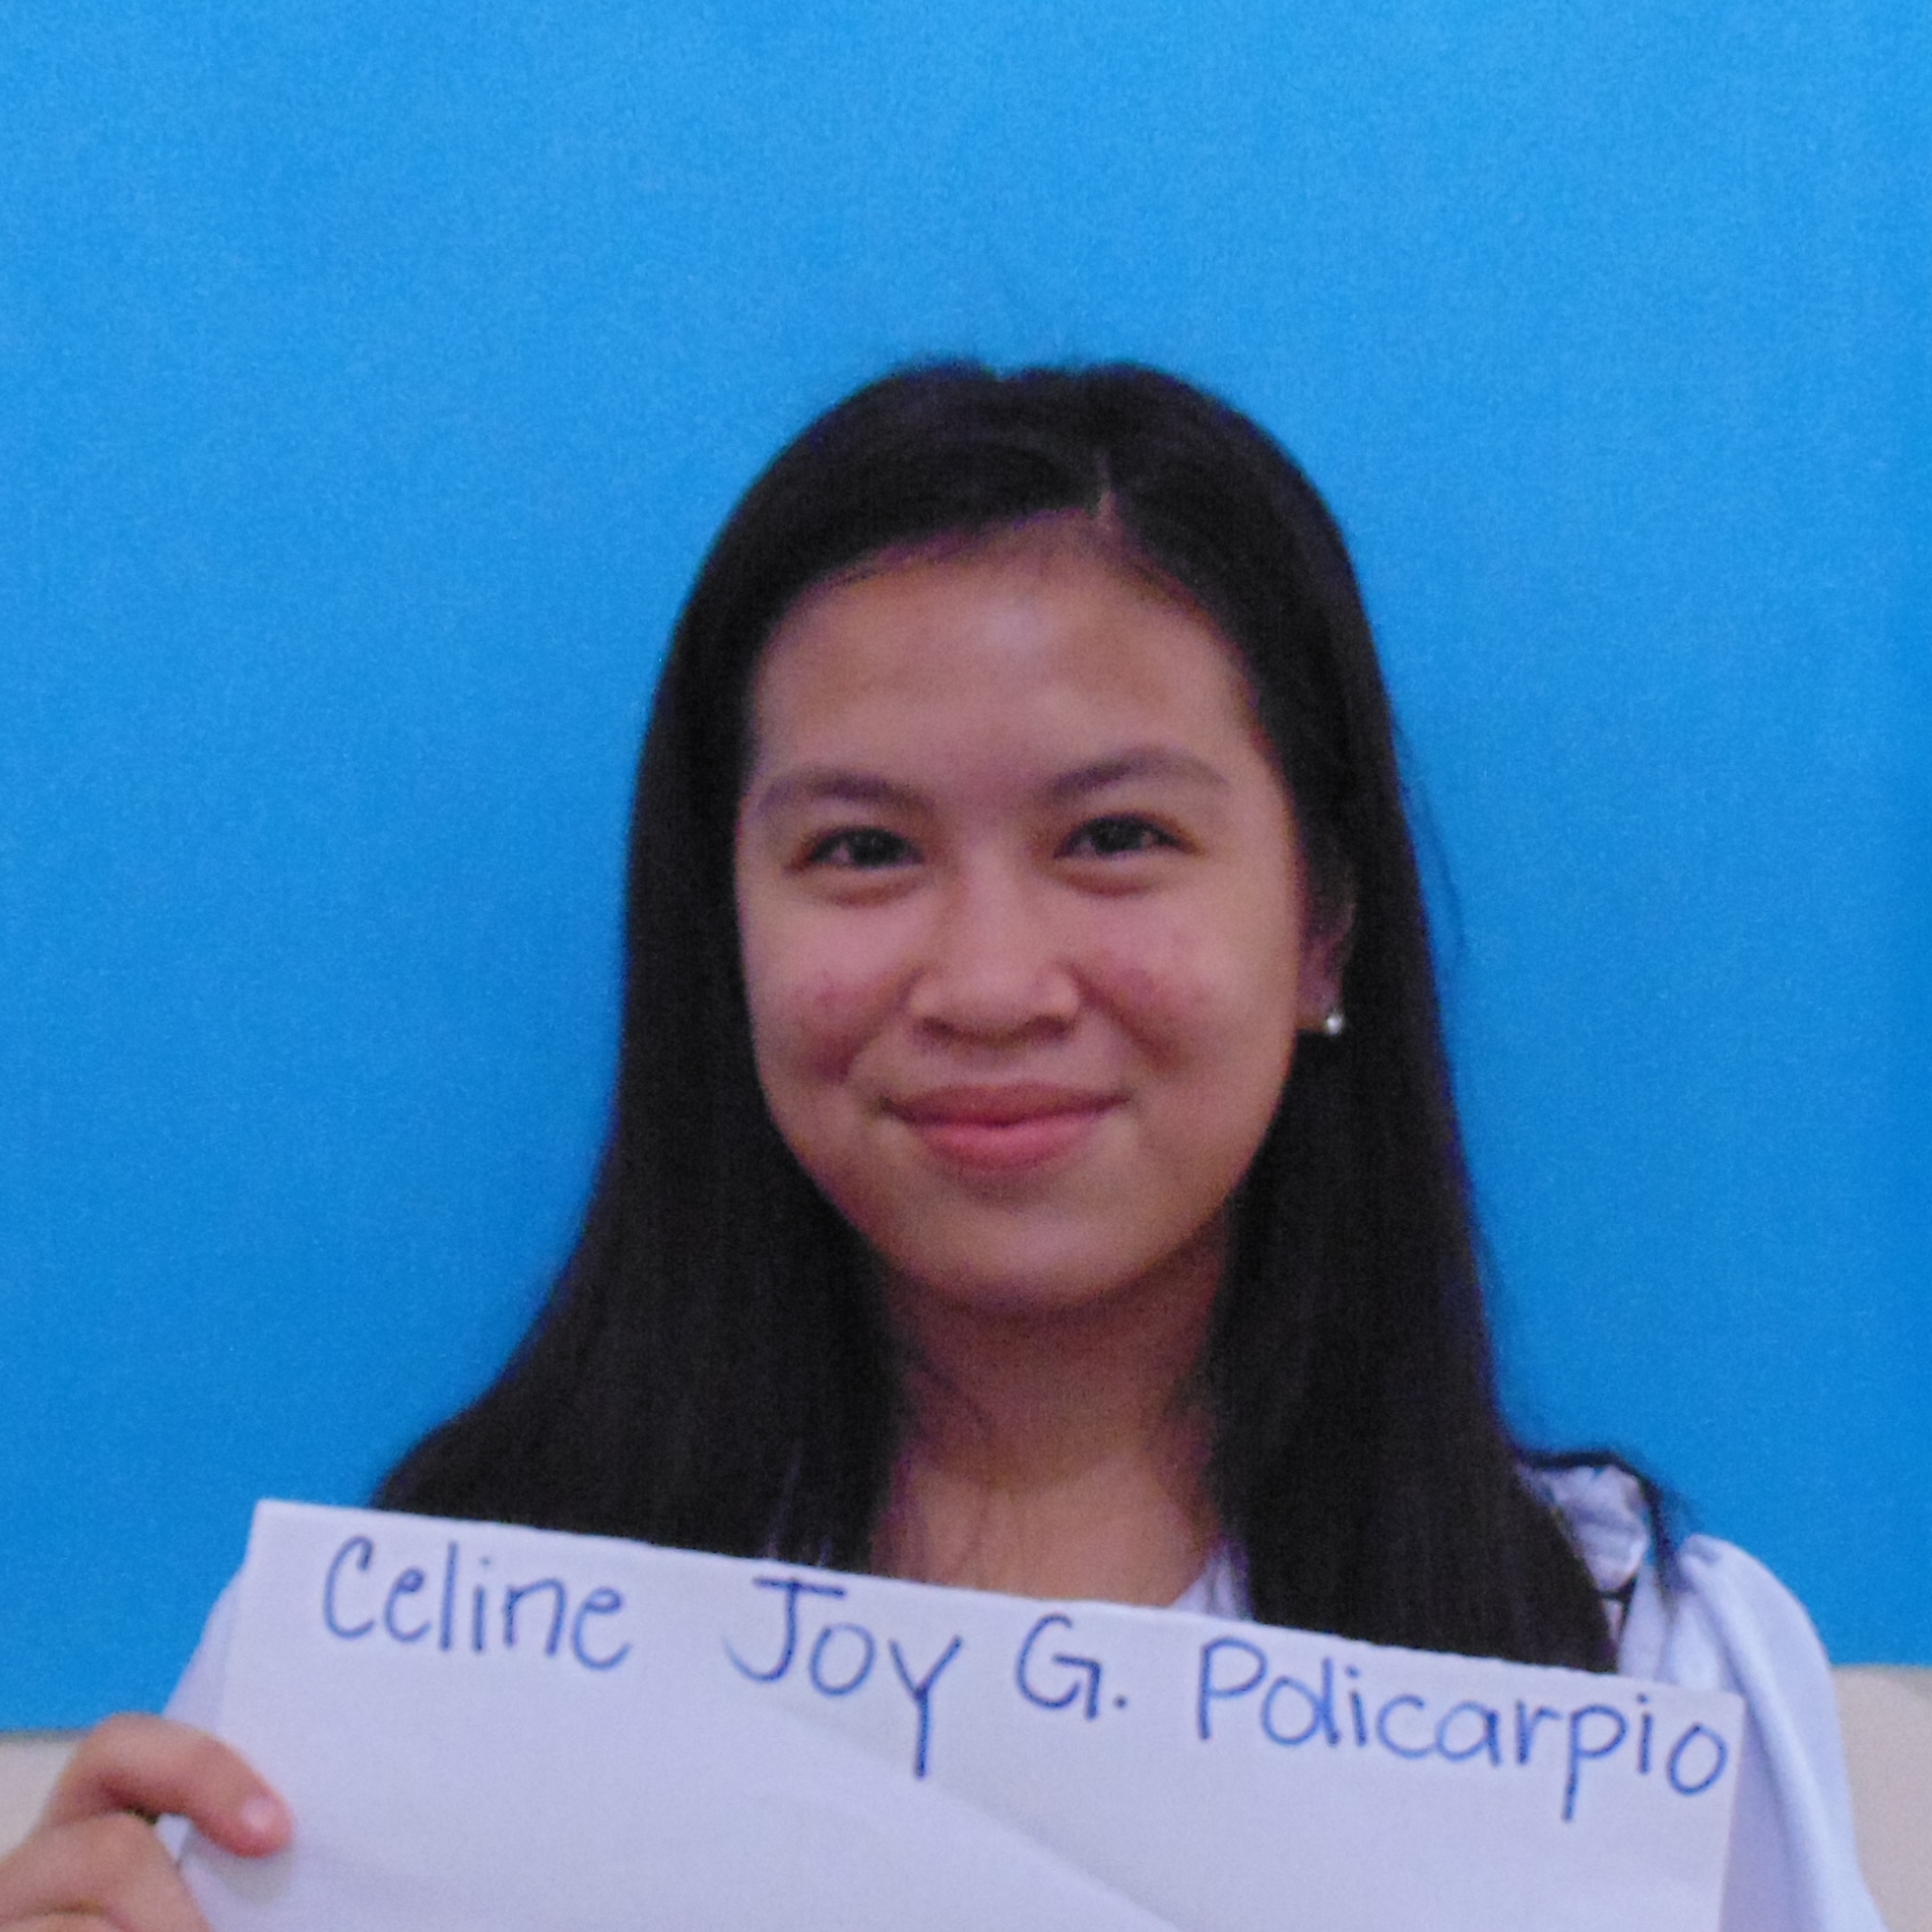 Celine Joy G. Policarpio